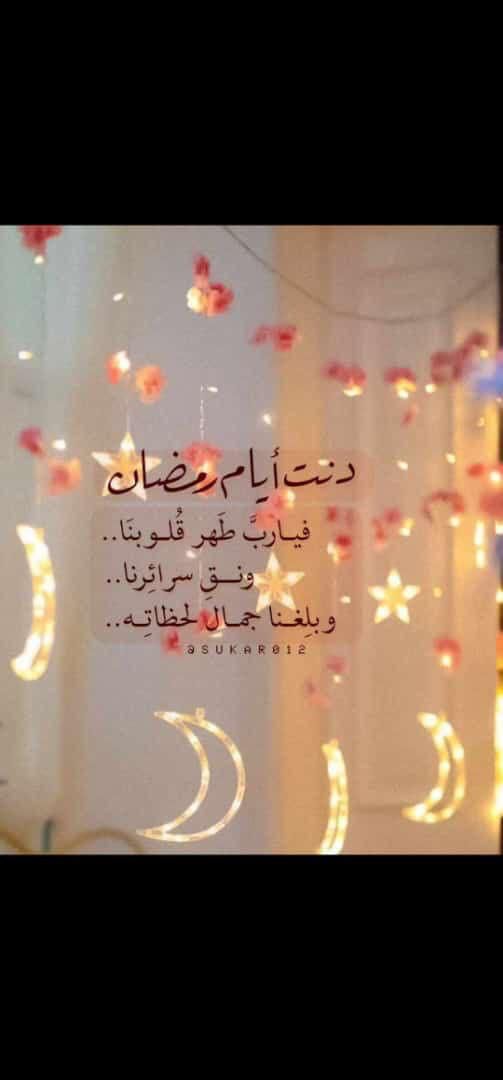 دنت أيام رمضان
فيـاربَّ طَهر قُلـوبنَا..
ونــقِ سرائِرنا..
وبلِغنـا جمـال لحظاتِـه..
@SUKAR012